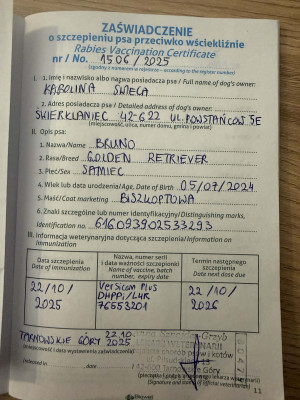 ZAŚWIADCZENIE
o szczepieniu psa przeciwko wściekliźnie
Rabies Vaccination Certificate
nr / No. 1506/2025
(zgodny z numerem w rejestrze – according to the register number)
I. - 1. Imię i nazwisko albo nazwa posiadacza psa / Full name of dog's owner:
KAROLINA
2. Adres posiadacza psa / Detailed address of dog's owner:
ŚWIERKLANIEC 42-622 UL. POWSTAŃCÓW 5E
(miejscowość, ulica, numer domu, gmina i powiat)
II. Opis psa:
1. Nazwa/Name BRUNO
2. Rasa/Breed GOLDEN RETRIEVER
3. Płeć/Sex SAMIEC
4. Wiek lub data urodzenia/Age, Date of Birth 05/07/2024
5. Maść/Coat marking BISZKOPTOWA
6. Znaki szczególne lub numer identyfikacyjny/Distinguishing marks,
Identification no. 616093902533293
III. Informacja weterynaryjna dotycząca szczepienia/Information on
immunization
Data szczepienia
Date of immunization
Nazwa, numer serii
i data ważności szczepionki
Name of vaccine, batch
number, expiry date
Termin następnego
szczepienia
Date next dose due
22/10/
2025
Versican Plus
DHPPi/L4R
76653201
22/10/
2026
TARNOWSKIE GÓRY 22.10.2025
(miejscowość i data wystawienia zaświadczenia)
(issued in) date
Tarnowskie Góry
(Signature and stamp of official veterinarian)
11